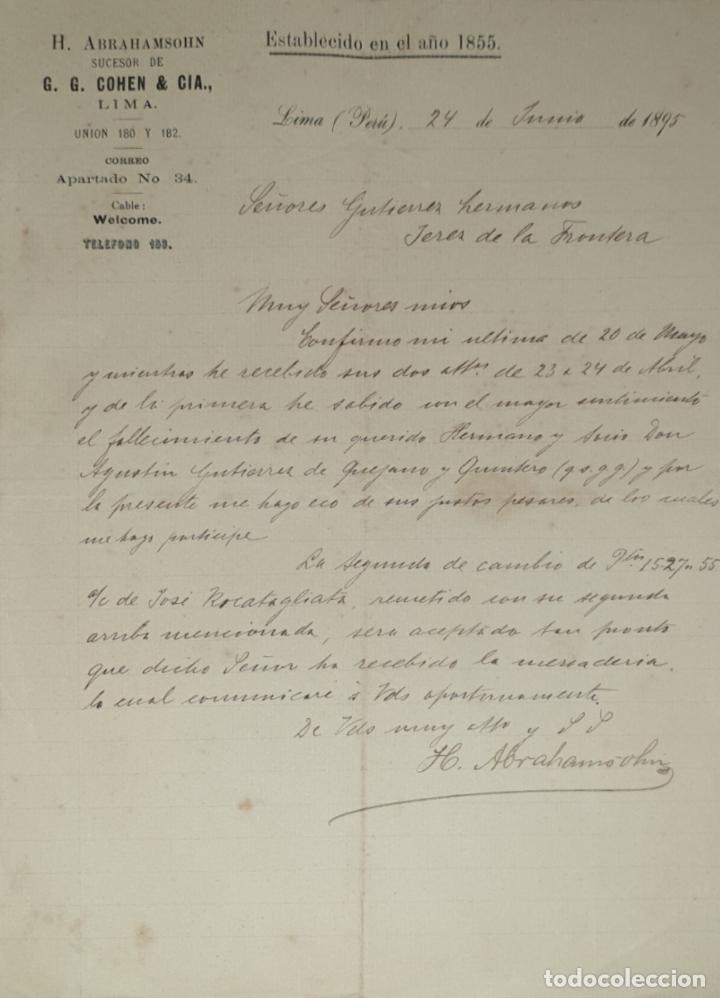 H. ABRAHAMSOHN
SUCESOR DE
G. G. COHEN & CIA.,
LIMA.
UNION 180 Y 182.
CORREO
Apartado No 34.
Cable:
Welcome.
TELEFONO 189.
Establecido en el año 1855.
Lima (Perú), 24 de Junio de 1895
Señores Gutierrez hermanos
Jerez de la Frontera
Muy Señores mios
Confirmo mi ultima de 20 de Mayo
y mientras he recebido sus dos attas de 23 a 24 de Abril,
y de la primera he sabido con el mayor sentimiento
el fallecimiento de su querido Hermano y Socio Don
Agustin Gutierrez de Quejano y Quintero (q.s.g.g) y por
la presente me hago eco de sus justos pesares, de los cuales
me hago participe
La segunda de cambio de 1527 55
a/c de José Rocatagliata, remetido con su segunda
arriba mencionada, sera aceptado tan pronto
que dicho Señor ha recebido la mercaderia,
lo cual comunicaré à Vds oportunamente.
De Vds muy atto y S S
H. Abrahamsohn
todocoleccion